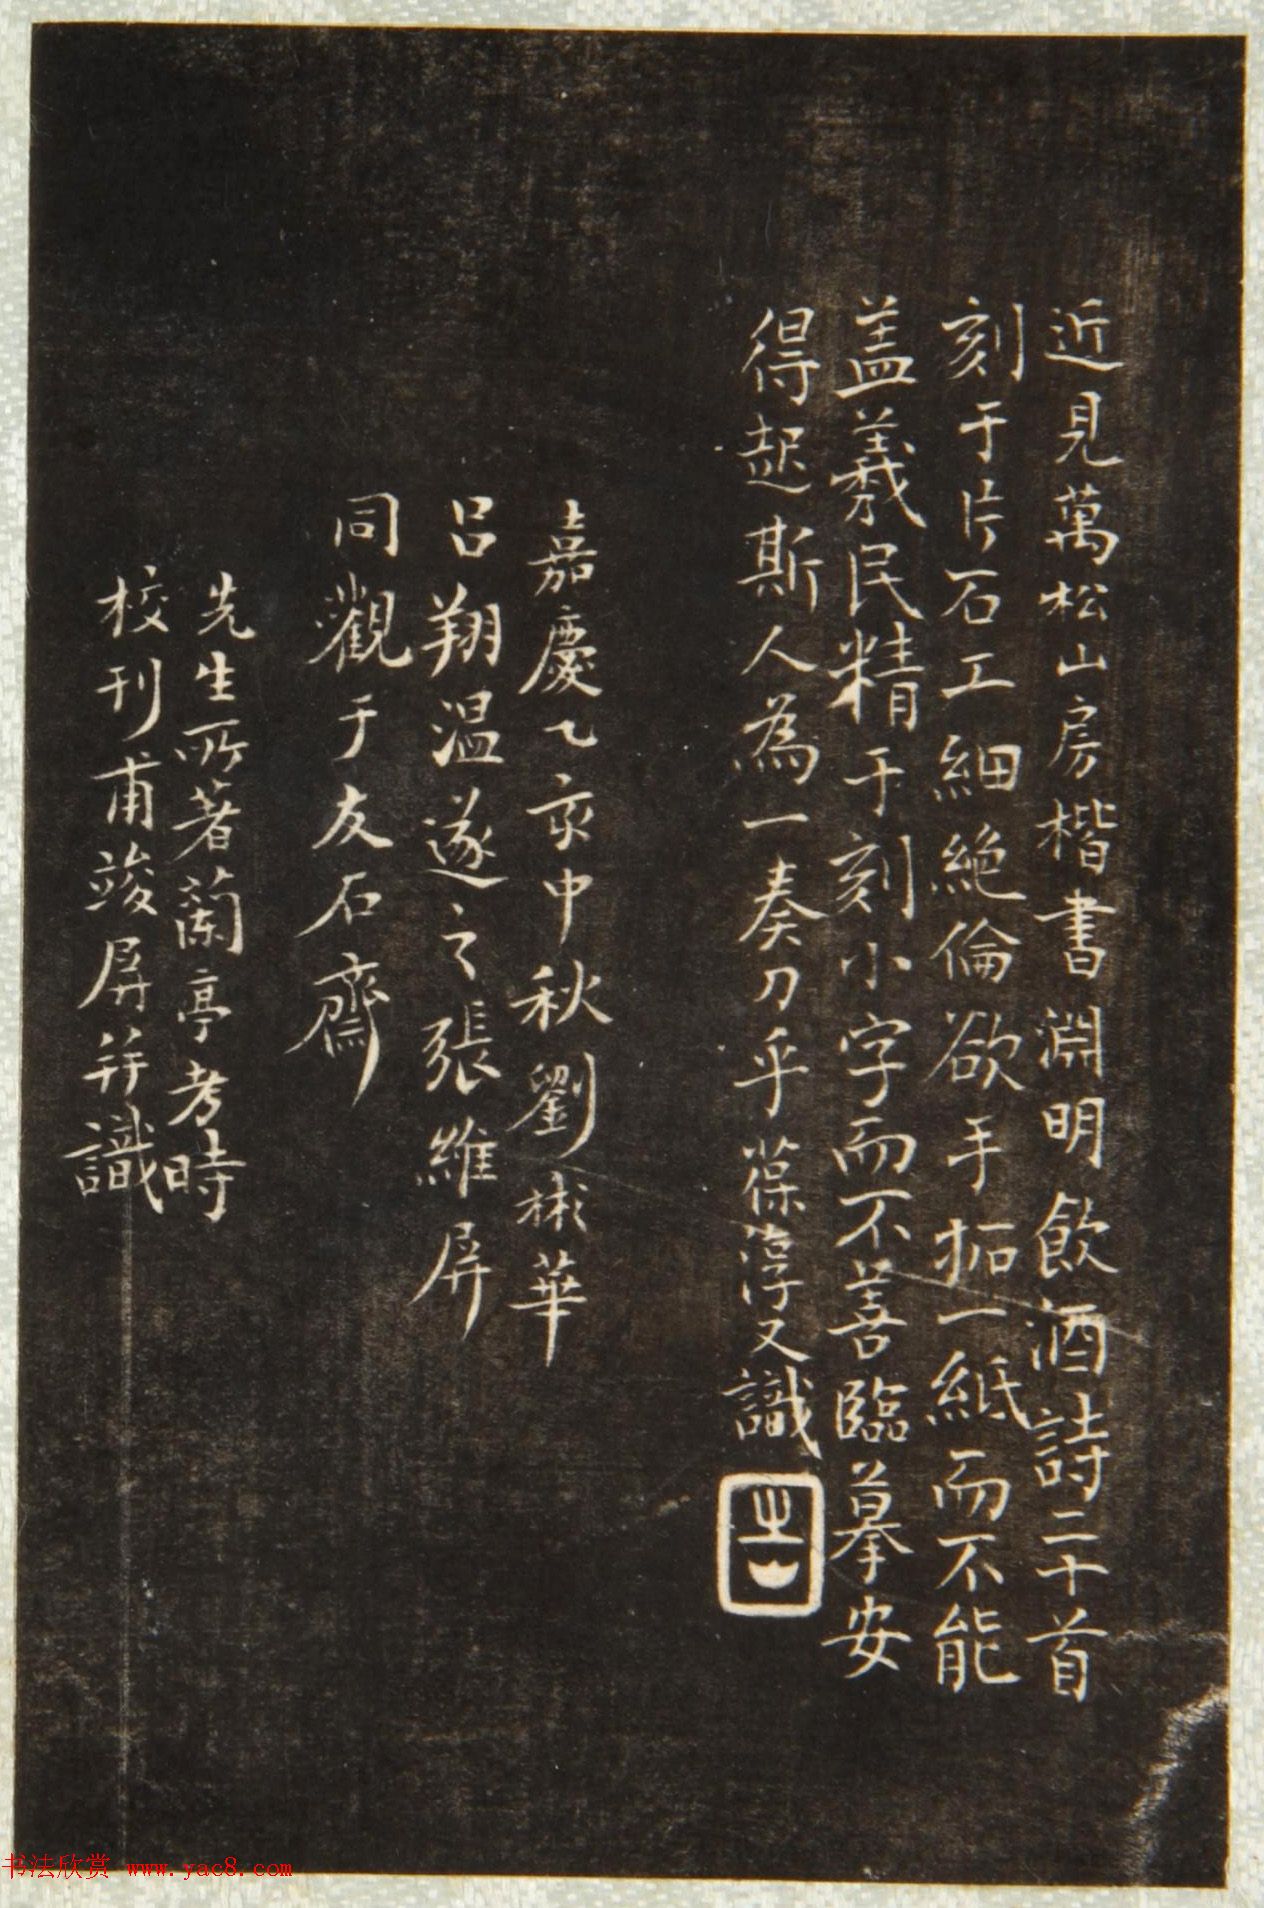 近見萬松山房楷書淵明飲酒詩二十首
刻于片石工細絶倫欲手拓一紙而不能
盖羲民精于刻小字而不善臨摹安
得起斯人為一奏刀乎葆淳又識
嘉慶乙亥中秋劉彬華
吕翔温遂之張維屏
同觀于友石齋
先生所著蘭亭考時
校刊甫竣屏并識
书法欣赏 www.yac8.com